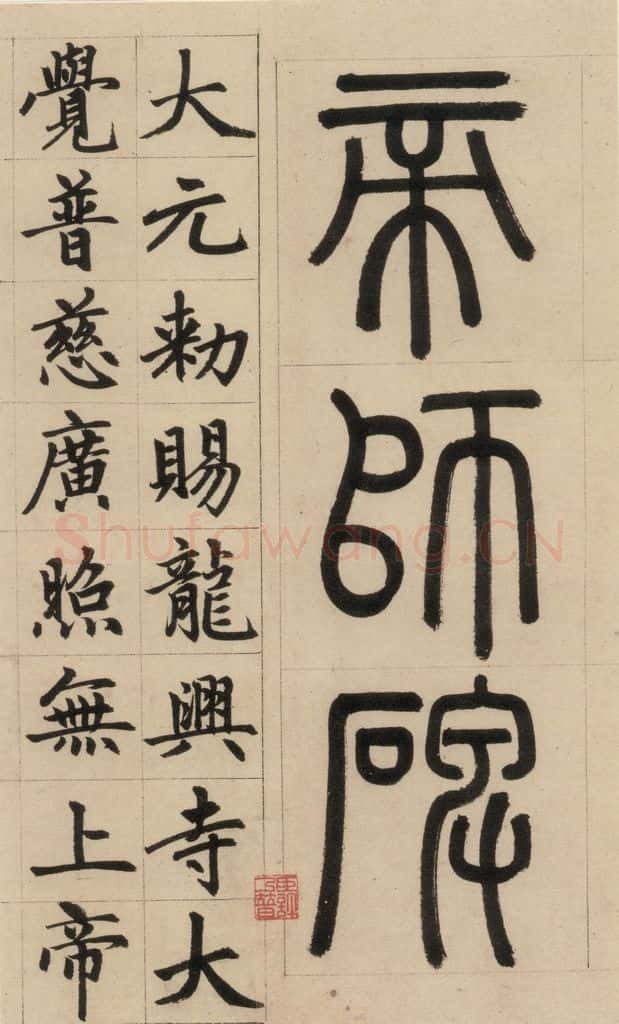 帝師碑
大元敕賜龍興寺大
覺普慈廣照無上帝
Shufawang.CN